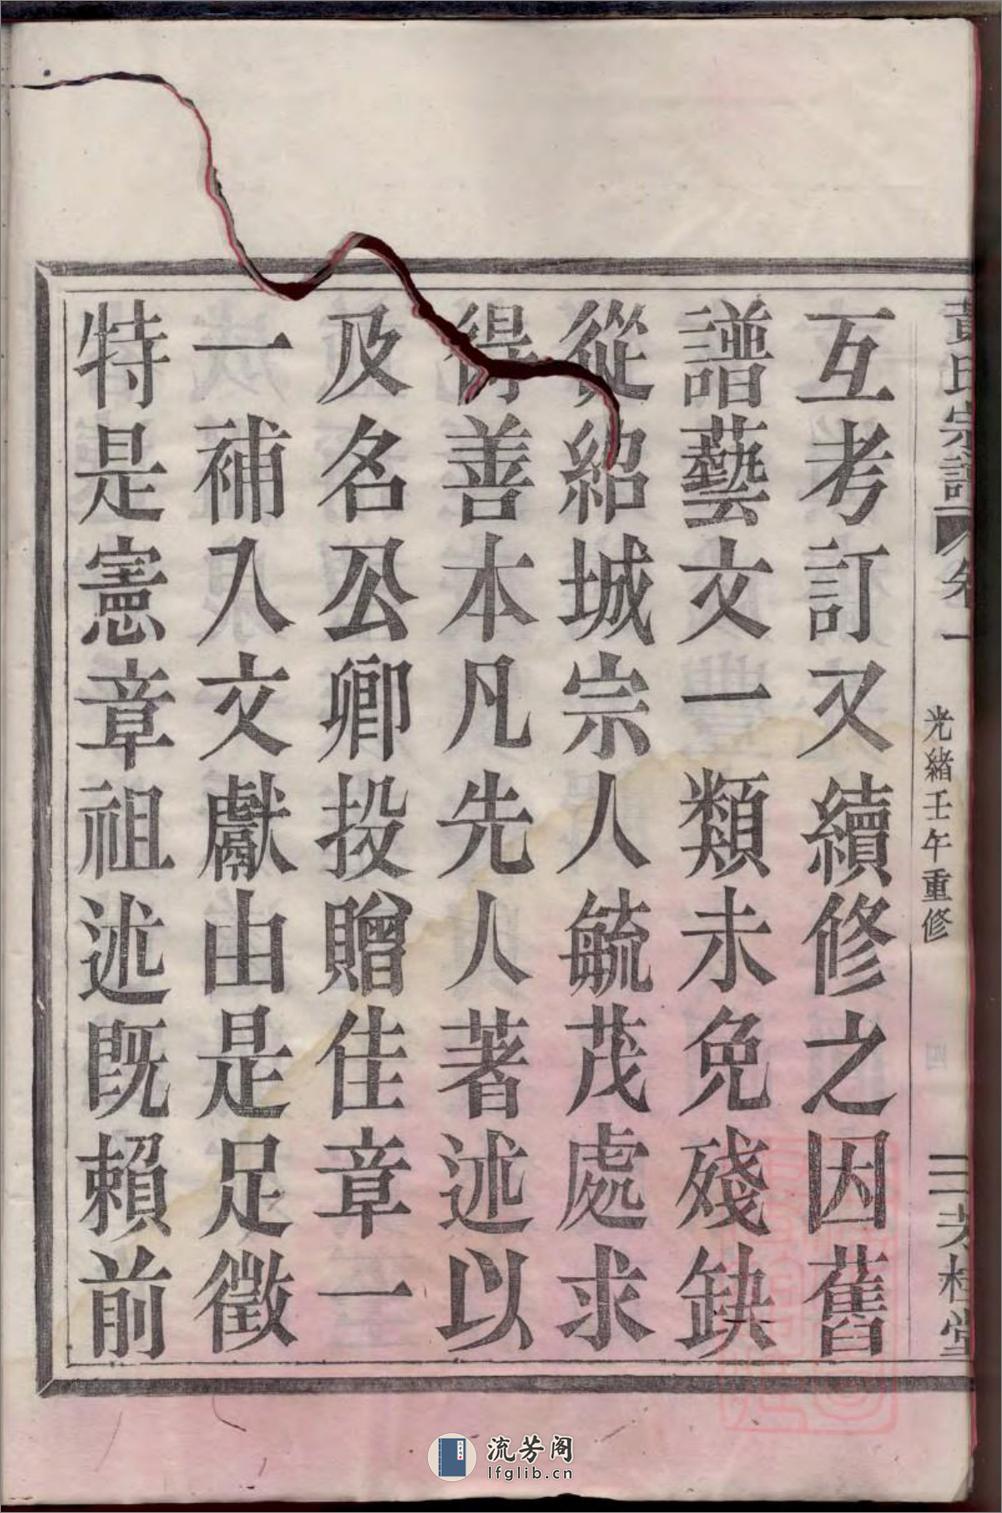 黃氏宗譜 卷一
光緒壬午重修
二
桂堂
互考訂又續修之因舊
譜藝文一類未免殘缺
從紹城宗人毓茂處求
得善本凡先人著述以
及名公卿投贈佳章一
一補入文獻由是足徵
特是憲章祖述既賴前
流芳阁
lfglib.cn